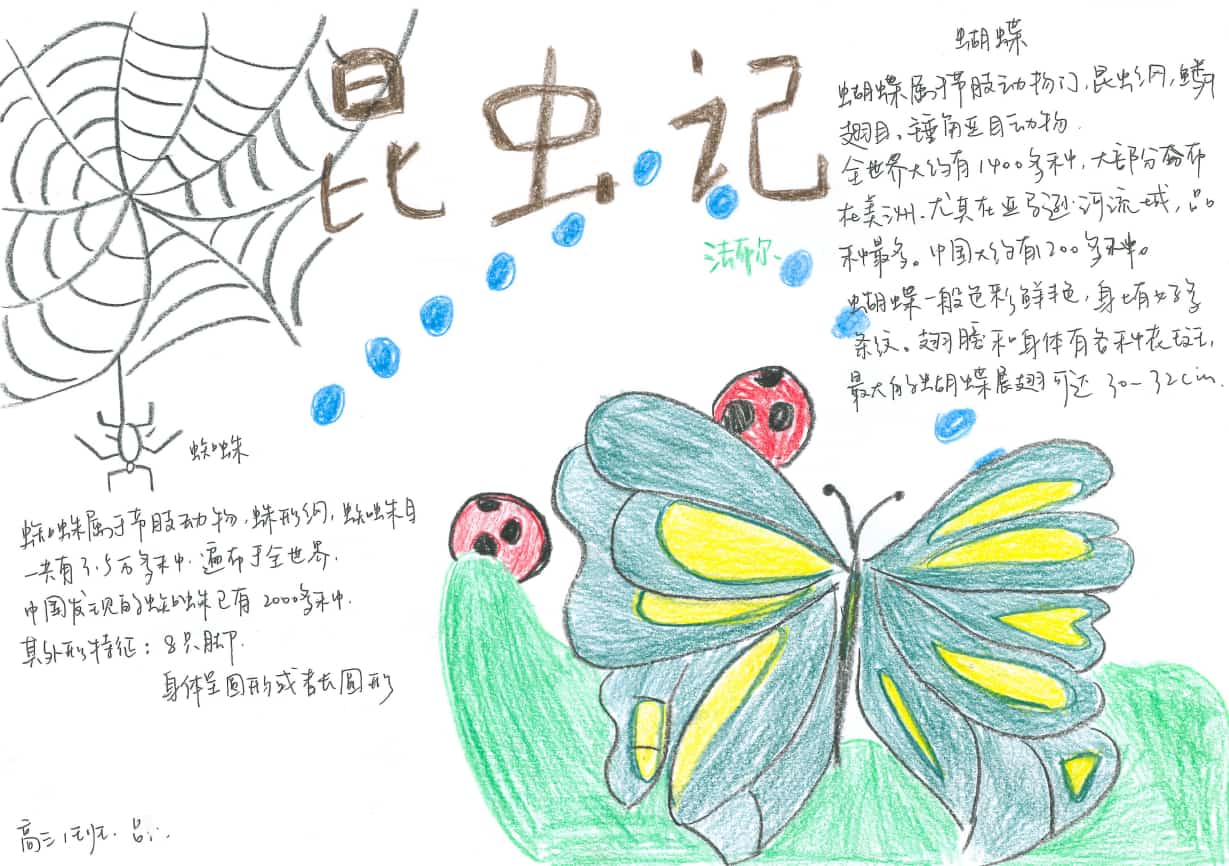 昆虫记
法布尔
蝴蝶
蝴蝶属于节肢动物门,昆虫纲,鳞
翅目、锤角亚目动物.
全世界大约有1400多种,大部分分布
在美洲.尤其在亚马逊河流域,品
种最多。中国大约有1200多种。
蝴蝶一般色彩鲜艳,身上有好多
条纹。翅膀和身体有各种花斑,
最大的蝴蝶展翅可达 30-32cm.
蜘蛛
蜘蛛属于节肢动物,蛛形纲,蜘蛛目
一共有3.5万多种.遍布于全世界.
中国发现的蜘蛛已有 2000多种.
其外形特征:8只脚.
身体呈圆形或者长圆形
高三